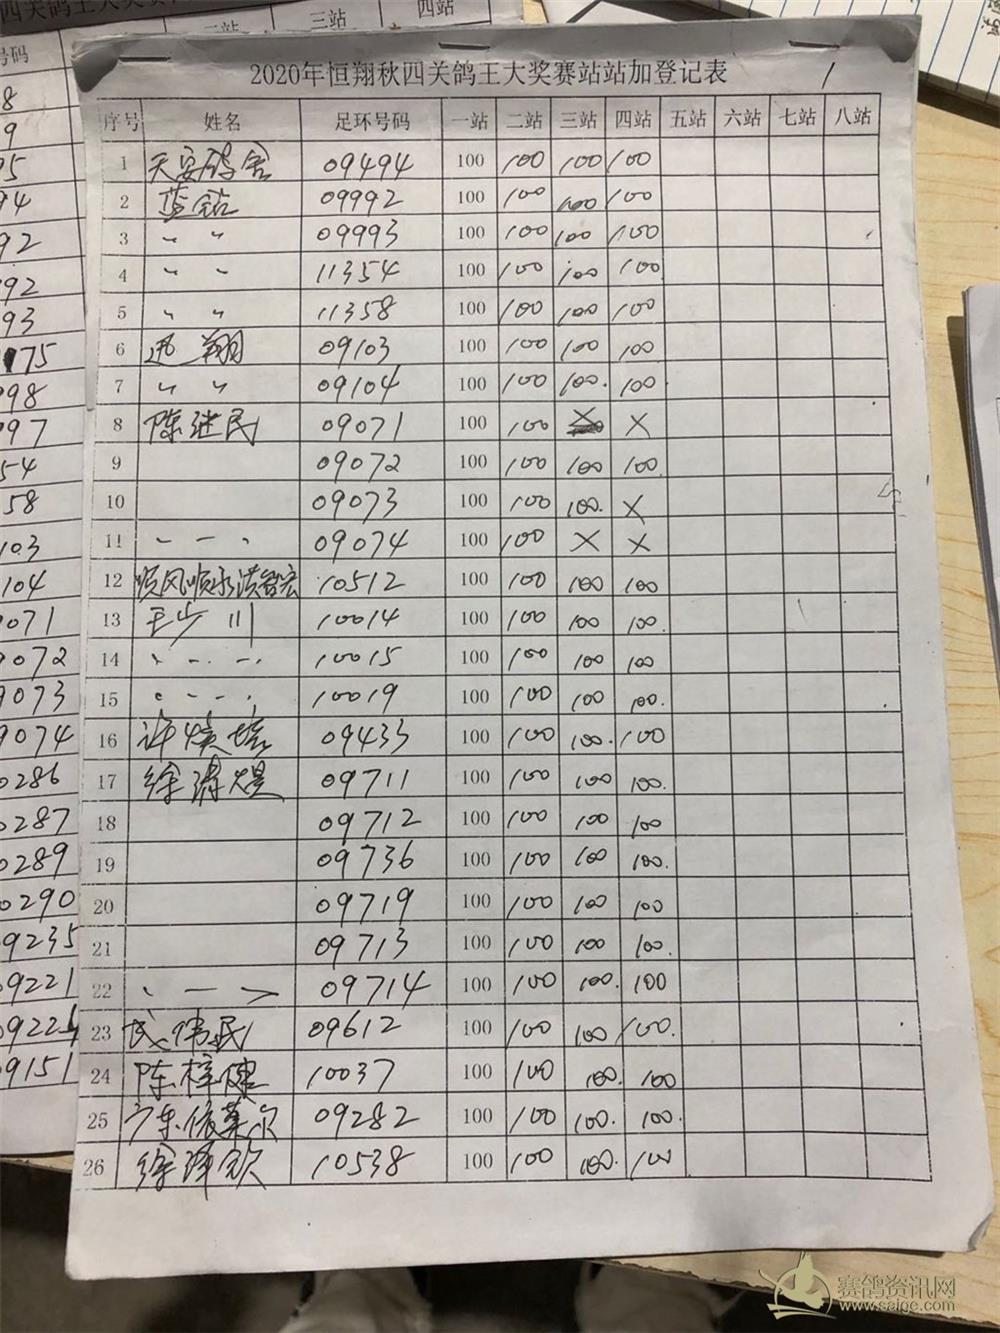 四关鸽王大奖赛
二站 三站 四站
号码
2020年恒翔秋四关鸽王大奖赛站站加登记表 1
序号 姓名 足环号码 一站 二站 三站 四站 五站 六站 七站 八站
1 天安鸽舍 09494 100 100 100 100
2 蓝钻 09992 100 100 100 100
3 〃 〃 09993 100 100 100 100
4 〃 〃 11354 100 100 100 100
5 〃 〃 11358 100 100 100 100
6 迅翔 09103 100 100 100 100
7 〃 〃 09104 100 100 100. 100
8 陈继民 09071 100 100 X X
9 09072 100 100 100 100.
10 09073 100 100 100. X
11 、 一 、 09074 100 100 X X
12 顺风顺水洪智宏 10512 100 100 100 100
13 王少川 10014 100 100 100 100.
14 、 一 、 10015 100 100 100 100
15 、 一 、 10019 100 100 100 100.
16 许焕培 09433 100 100 100. 100
17 徐清煜 09711 100 100 100 100.
18 09712 100 100 100 100
19 09736 100 100 100 100.
20 09719 100 100 100 100
21 09713 100 100 100 100.
22 、 一 09714 100 100 100. 100
23 伟民 09612 100 100 100 100.
24 陈梓健 10037 100 100 100. 100
25 广东依莱尔 09282 100 100 100. 100.
26 徐泽钦 10538 100 100 100. 100
92
92
93
75
98
97
54
58
103
104
9071
9072
9073
9074
0286
0287
0289
0290
09235
09221
0922
09151
赛鸽资讯网
www.saige.com